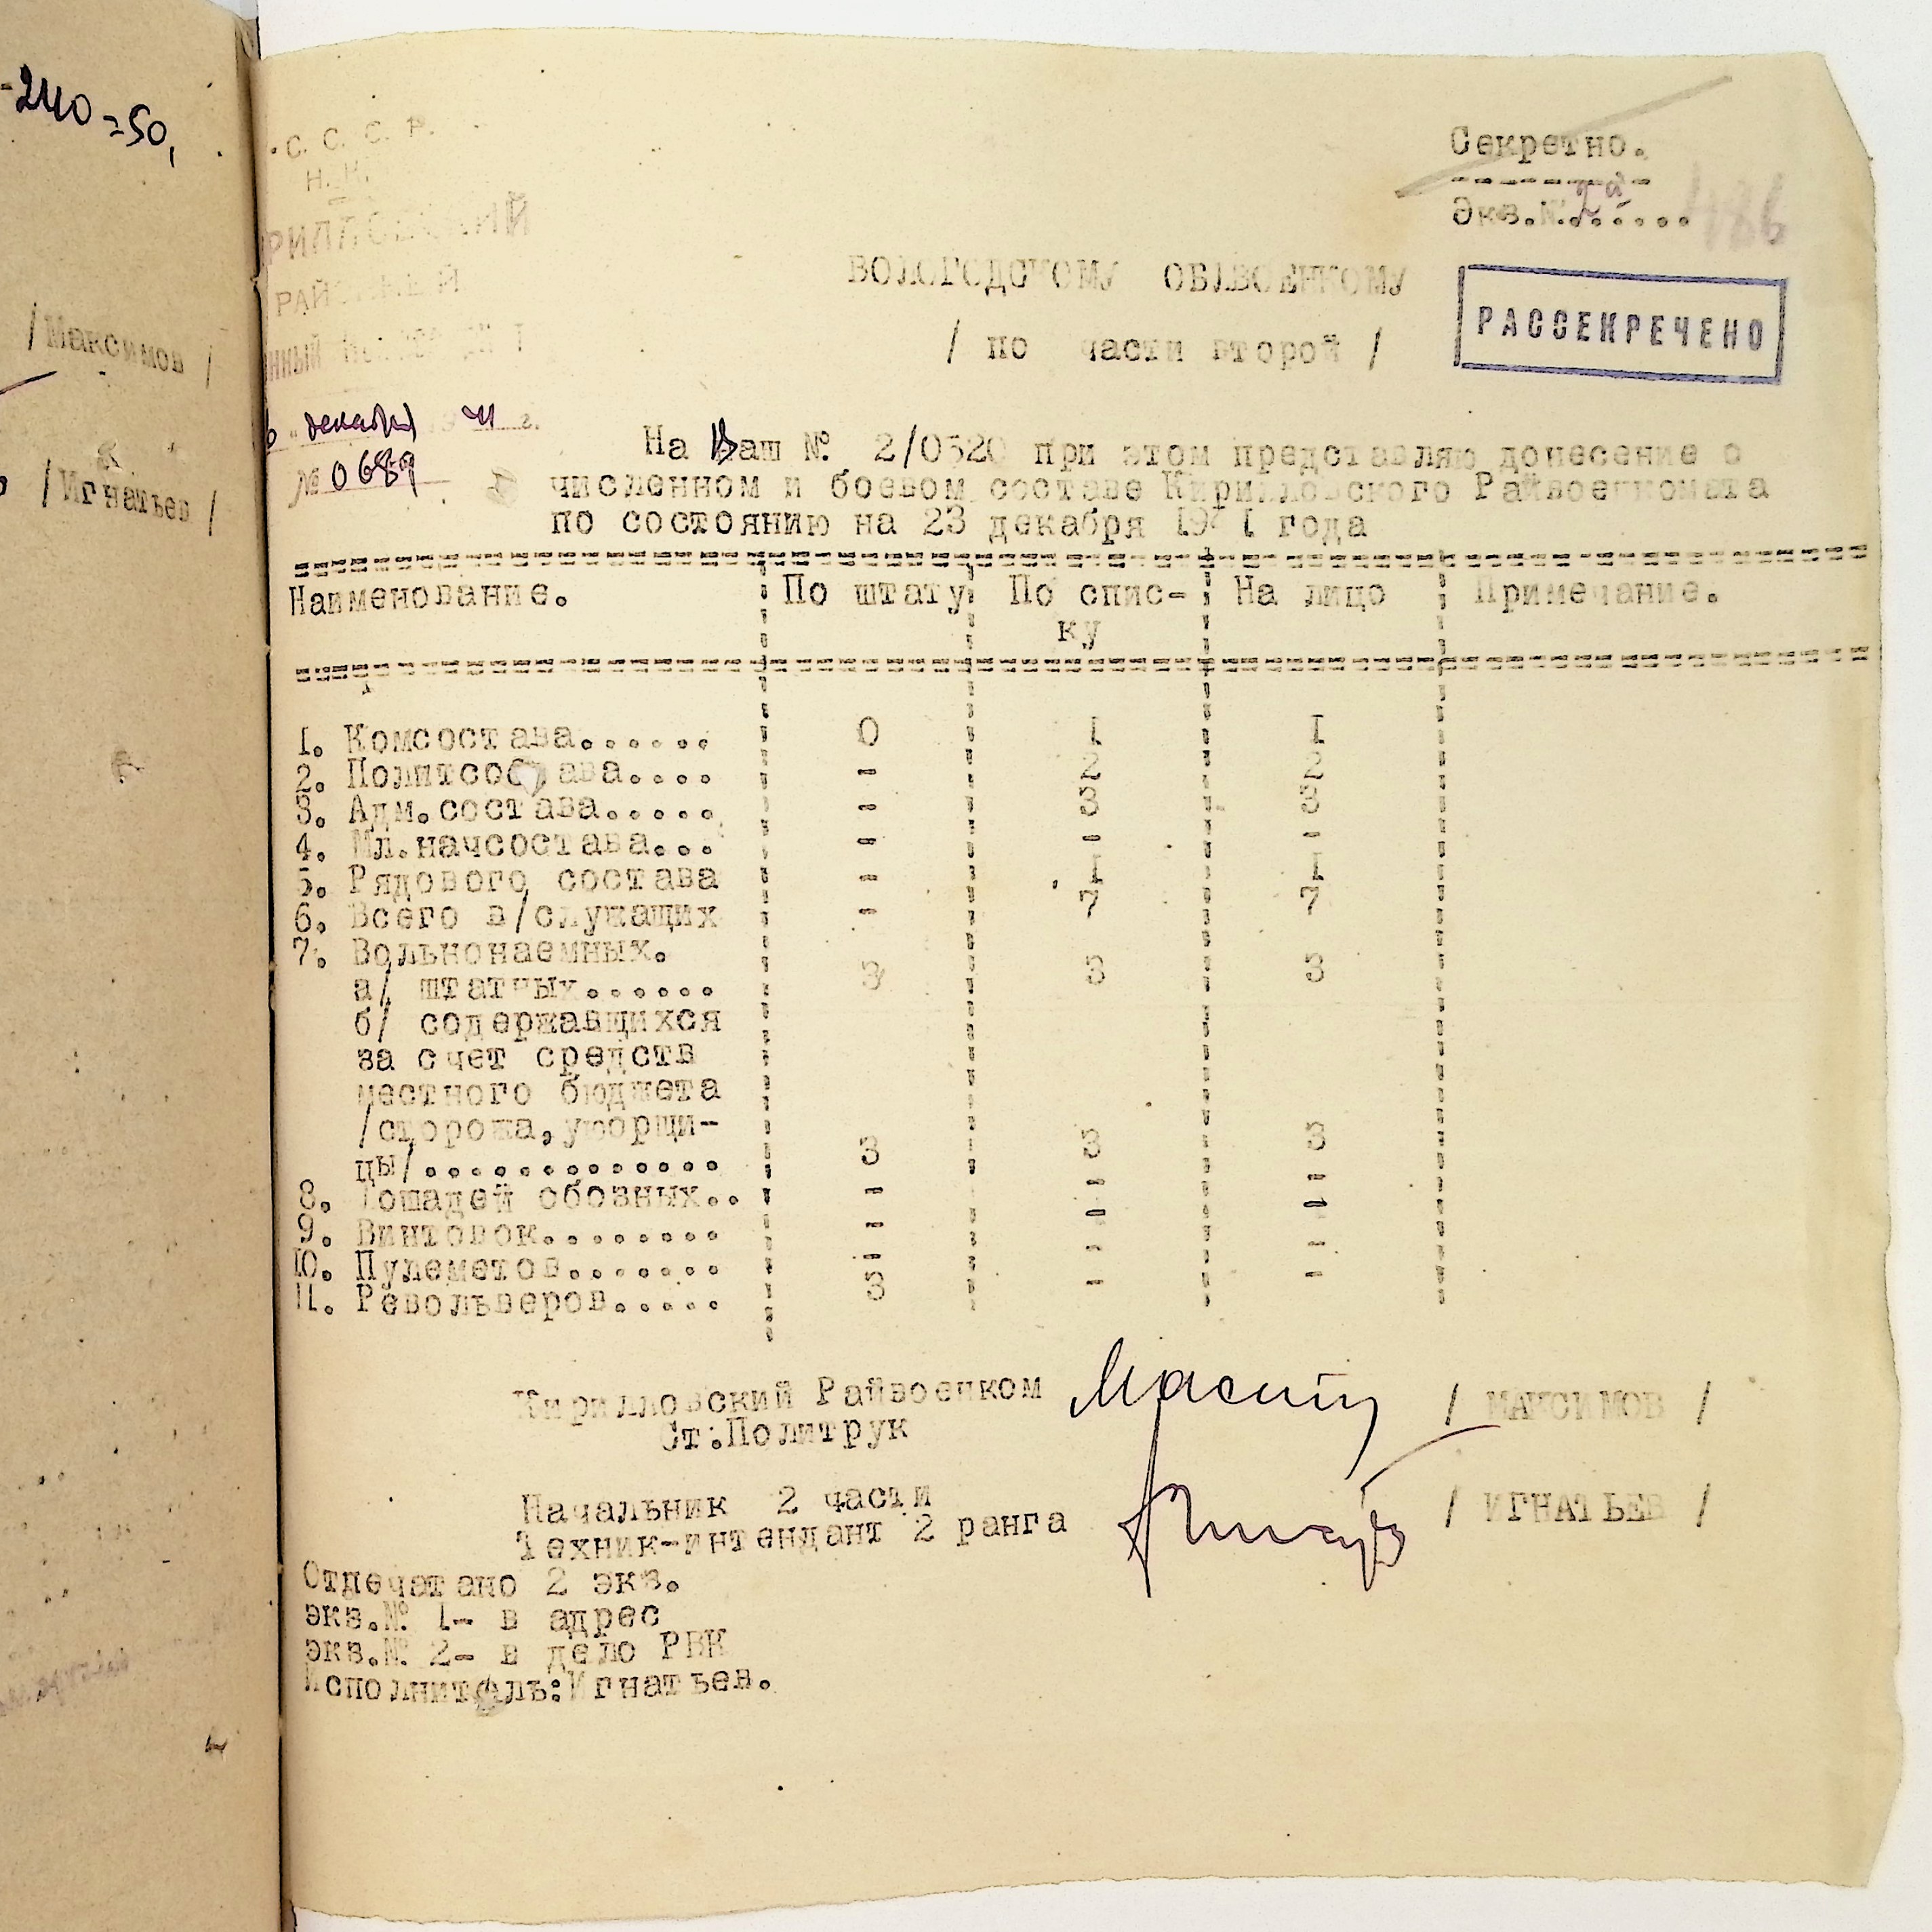 -240=50,
/Максимов /
/Игнатьев /
С. С. С. Р.
РАЙОННЫЙ
декабря 41 г.
№ 0689
Секретно.
Экз.№ 2й
486
ВОЛОГОДСКОМУ ОБЛВОЕНКОМУ
/ по части второй /
РАССЕКРЕЧЕНО
На Ваш № 2/0520 при этом представляю донесение о
численном и боевом составе Кирилловского Райвоенкомата
по состоянию на 23 декабря 1941 года
Наименование. По штату По спис- На лицо Примечание.
ку
1. Комсостава...... 0 1 1
2. Политсостава.... - 2 2
3. Адм.состава..... - 3 3
4. Мл.начсостава... - - -
5. Рядового состава - 1 1
6. Всего в/служащих - 7 7
7. Вольнонаемных.
а/ штатных...... 3 3 3
б/ содержавщихся
за счет средств
местного бюджета
/сторожа,уборщи-
цы/............. 3 3 3
8. Лошадей обозных.. - - -
9. Винтовок........ - - -
10. Пулеметов....... - - -
11. Револьверов..... 3 - -
Кирилловский Райвоенком / МАКСИМОВ /
Ст.Политрук
Начальник 2 части
Техник-интендант 2 ранга / ИГНАТЬЕВ /
Отпечатано 2 экз.
экз.№ 1- в адрес
экз.№ 2- в дело РВК
Исполнитель:Игнатьев.